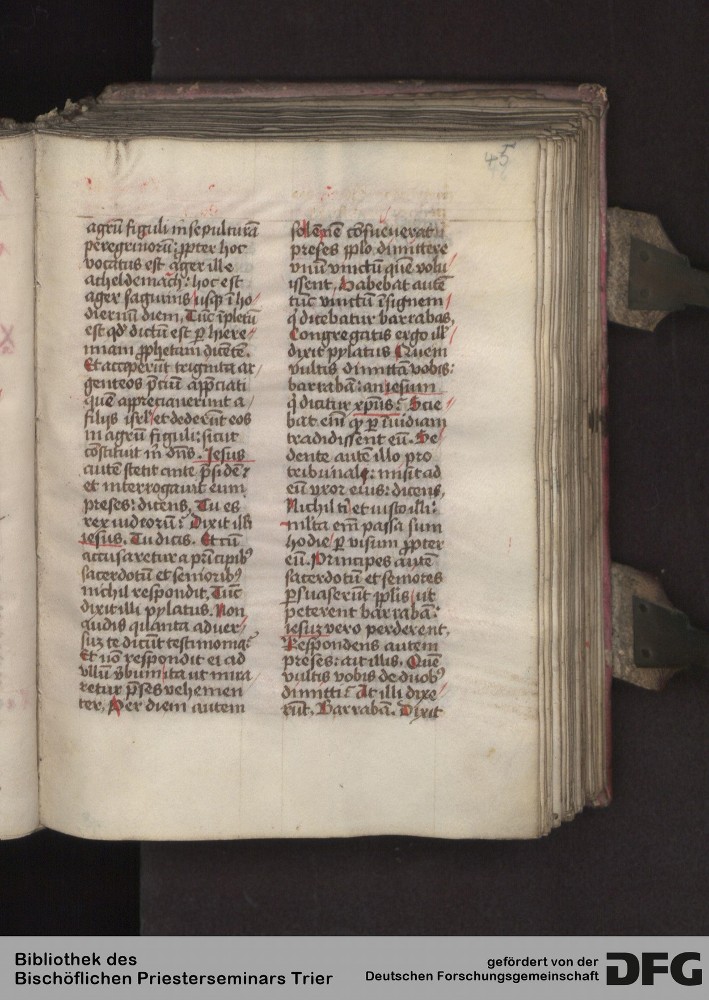 45
agrū figuli in sepulturā
peregrinorū: ꝓpter hoc
vocatus est ager ille
acheldemach: hoc est
ager saguinis usqꝫ ī ho/
diernū diem. Tūc īpletū
est qđ dictū est ꝑ hiere/
miam ꝓphetam dicētē.
Et acceperūt triginta ar/
genteos p̄ciū app̄ciati
quē appreciauerūt a/
filijs isrl̓ et dederūt eos
in agrū figuli: sicut
cōstituit m̄ dn̄s. Jesus
autē stetit ante p̄sidē:
et interrogauit eum
preses: dicens. Tu es
rex iudeorū? Dixit illi
iesus. Tu dicis. Et cū
accusaretur a prīcipibꝰ
sacerdotū et senioribꝰ
nichil respondit. Tūc
dixit illi pylatus. Non
audis quanta aduer/
suꝫ te dicūt testimonia?
Et nō respondit ei ad
vllū v̄bum ita ut mira/
retur p̄ses vehemen
ter. Per diem autem
solēnē cōsueuerat
preses ppl̓o dimittere
vnū vinctū quē volu/
issent. Habebat autē
tūc vinctū īsignem/
q̇ dicebatur barrabas.
Congregatis ergo ill̓
dixit pylatus Quem
vultis dimittā vobis:
barrabā: an iesum
q̇ dicitur xp̄us? Scie/
bat em̄ qꝙ ꝑ īuidiam
tradidissent eū. Se/
dente autē illo pro
tribunali: misit ad
eū vxor eius: dicens.
Nichil ti et iusto illi:
mlta em̄ passa sum
hodie ꝑ visum ꝓpter
eū. Principes autē
sacerdotū et seniores
ꝑsuaserūt ppl̓is ut
peterent barrabā:
iesuꝫ vero perderent.
Respondens autem
preses: ait illis. Quē
vultis vobis de duobꝰ
dimitti? At illi dixe/
rūt. Barrabā. Dixit
Bibliothek des
Bischöflichen Priesterseminars Trier
gefördert von der
Deutschen Forschungsgemeinschaft
DFG